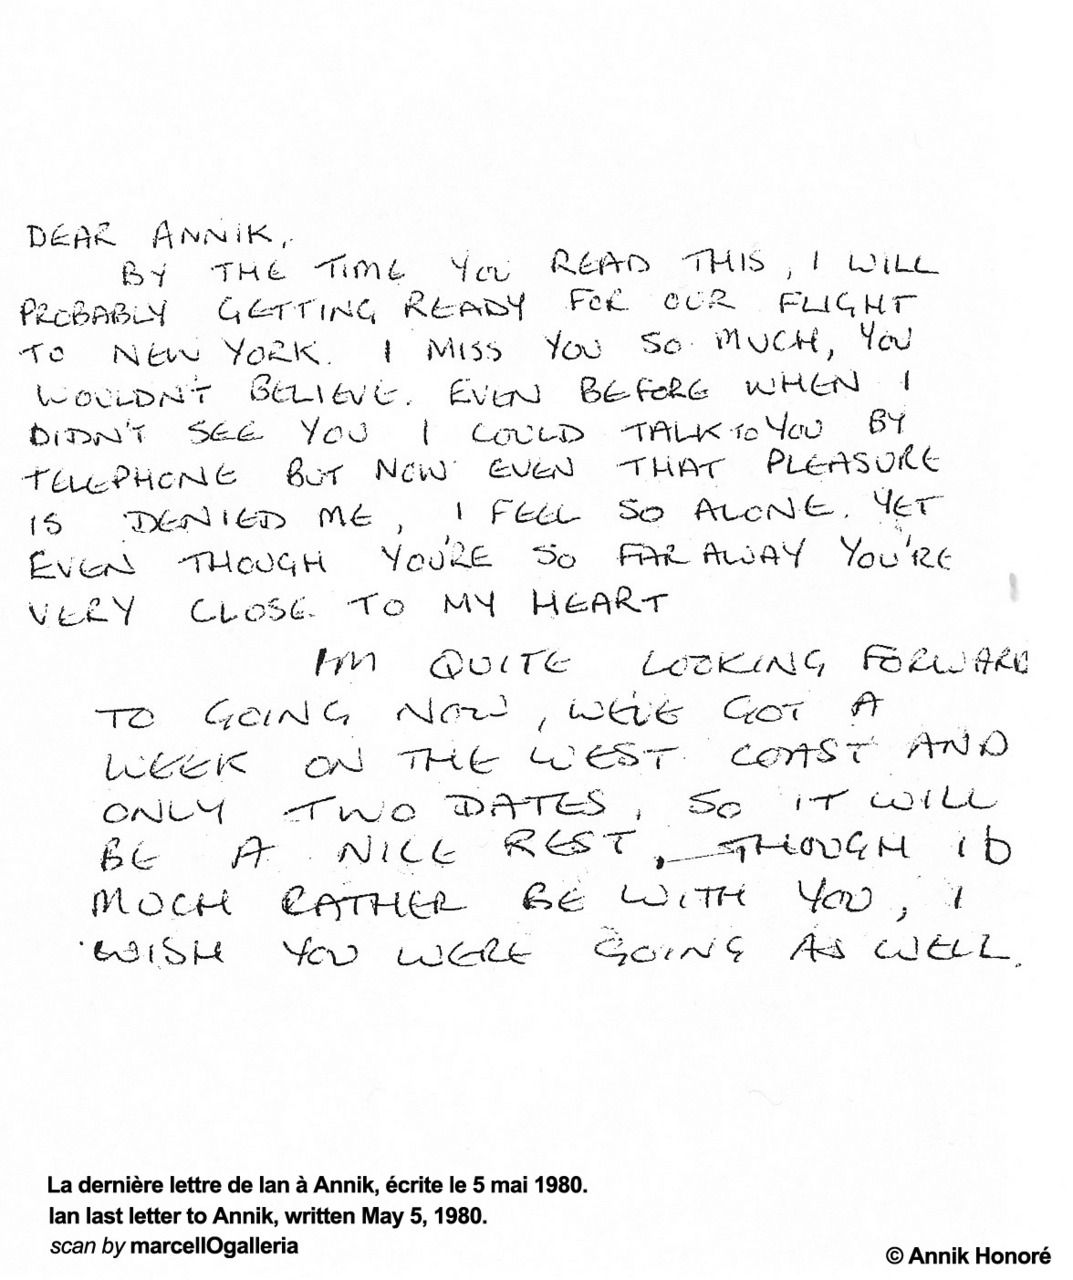 DEAR ANNIK,
BY THE TIME YOU READ THIS, I WILL
PROBABLY GETTING READY FOR OUR FLIGHT
TO NEW YORK. I MISS YOU SO MUCH, YOU
WOULDN'T BELIEVE. EVEN BEFORE WHEN I
DIDN'T SEE YOU I COULD TALK TO YOU BY
TELEPHONE BUT NOW EVEN THAT PLEASURE
IS DENIED ME, I FEEL SO ALONE. YET
EVEN THOUGH YOU'RE SO FAR AWAY YOU'RE
VERY CLOSE TO MY HEART
I'M QUITE LOOKING FORWARD
TO GOING NOW, WE'VE GOT A
WEEK ON THE WEST COAST AND
ONLY TWO DATES, SO IT WILL
BE A NICE REST, THOUGH ID
MUCH RATHER BE WITH YOU, I
WISH YOU WERE GOING AS WELL.
La dernière lettre de Ian à Annik, écrite le 5 mai 1980.
Ian last letter to Annik, written May 5, 1980.
scan by marcellOgalleria
© Annik Honoré